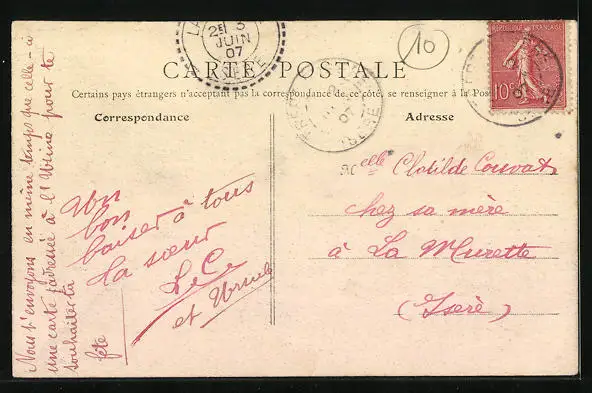 CARTE POSTALE
Certains pays étrangers n'acceptant pas la correspondance de ce côté, se renseigner à la Poste
Correspondance
Adresse
10
RÉPUBLIQUE FRANÇAISE
10c
2E 3
JUIN
07
ISÈRE
07
ISÈRE
Nous t'envoyons en même temps que celle-ci
une carte adressée à l'Usine pour te
souhaiter ta
fête
Un
bon
baiser à tous
La sœur
L. C.
et Ursule
Melle Clotilde Couvat
chez sa mère
à La Murette
(Isère)